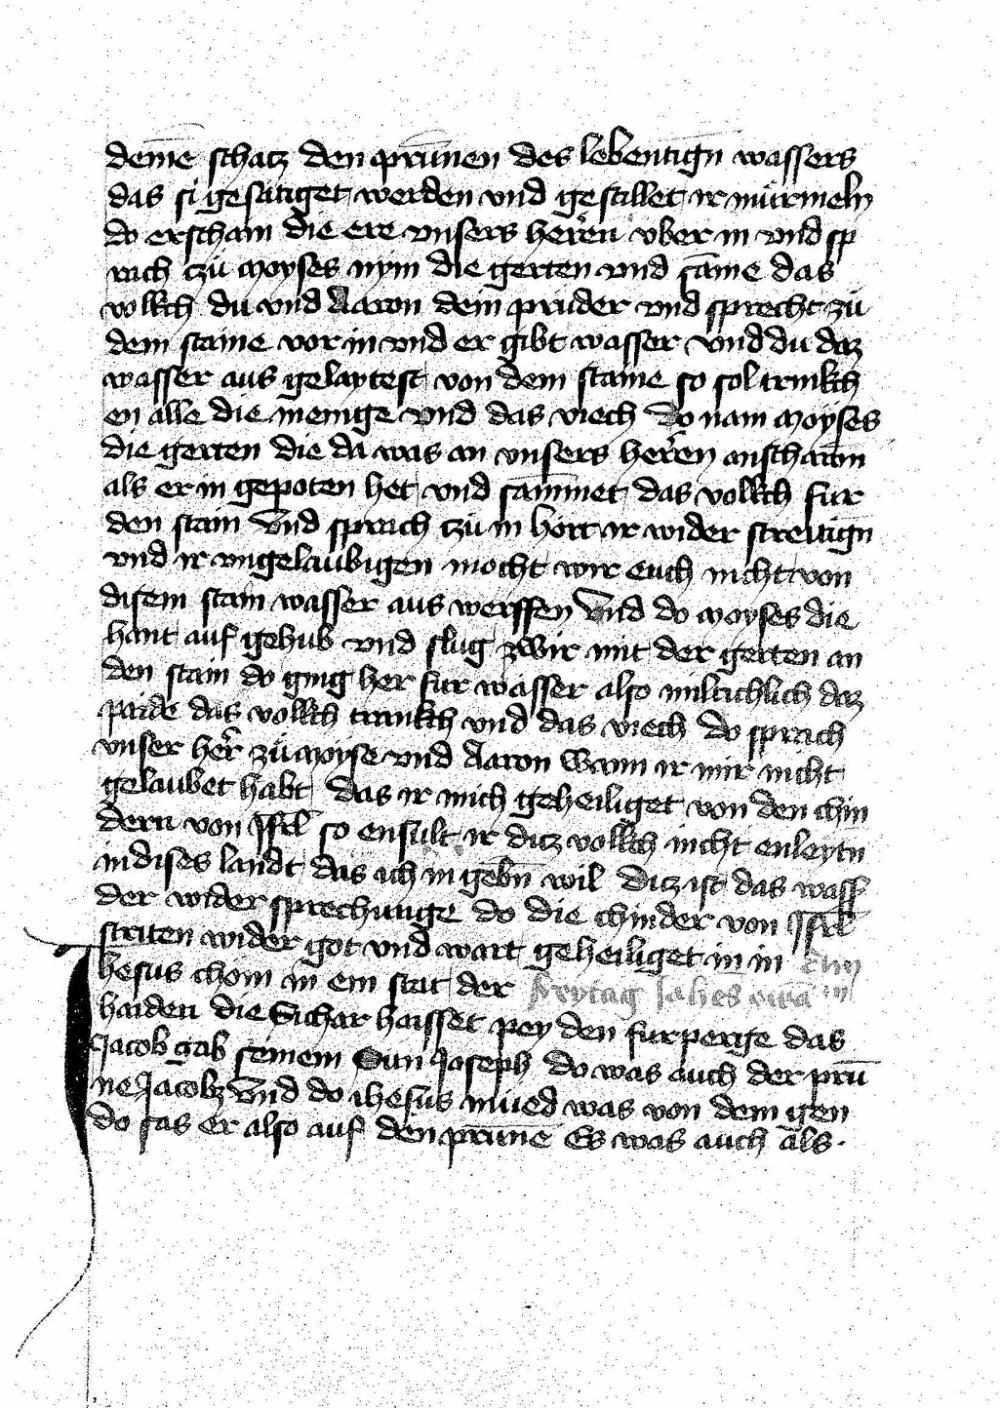 deinē schatz den prūnen des lebentign wassers
das si gesatiget werden vnd gestillet ir mürmeln
do erscham die ere vnsers herren vber in vnd sp
rach tzü moyses nym die gerten vnd same das
vollkch du vnd Aaron dein prüder vnd sprecht zü
dem staine vor in vnd er gibt wasser vnd du daz
wasser aus gelaytest von dem staine so sol trinkch
en alle die menige vnd das viech do nam moyses
die gerten die da was an vnsers herren anschawn
als er in gepoten het vnd sammet das vollkch fur
den stain vnd sprach tzü in hört ir wider streitign
vnd ir vngelaubigen mocht wir euch nicht von
disem stain wasser aus werffen vnd do moyses die
hant auf gehub vnd slug zwir mit der gerten an
den stain do ging her fur wasser also miltichlich daz
paide das vollkch trinkch vnd das viech do sprach
vnser her zü moyse vnd Aaron Wann ir mir nicht
gelaubet habt das ir mich geheiliget von den chin
dern von Isrl so ensult ir ditz vollkch nicht enleytn
in dises landt das ich in gebn wil ditz ist das wass
der wider sprechunge do die chinder von Isrl
striten wider got vnd wart geheiliget in in
hesus chom in ein stat der freytag Johes
haiden die Sichar haisset pey den furperge das
Jacob gab seinem Sun Joseph do was auch der prū
ne Jacobz vnd do ihesus mued was von dem gen
do sas er also auf den prunne Es was auch als